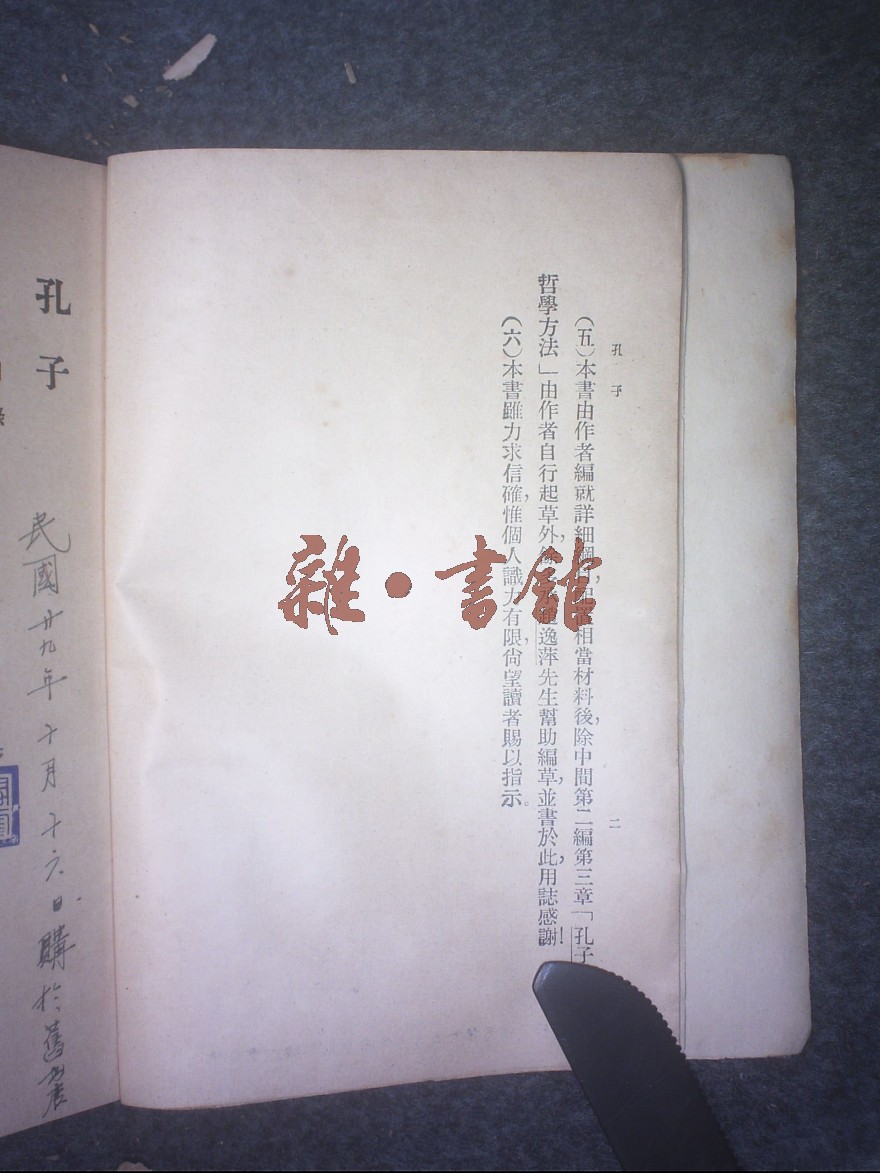 孔子
二
(五)本書由作者編就詳細綱目,配置相當材料後,除中間第二編第三章「孔子
哲學方法」由作者自行起草外,餘逸萍先生幫助編草,並書於此,用誌感謝!
(六)本書雖力求信確,惟個人識力有限,尙望讀者賜以指示。
孔子
民國廿九年十月十六日購於舊
雜·書館